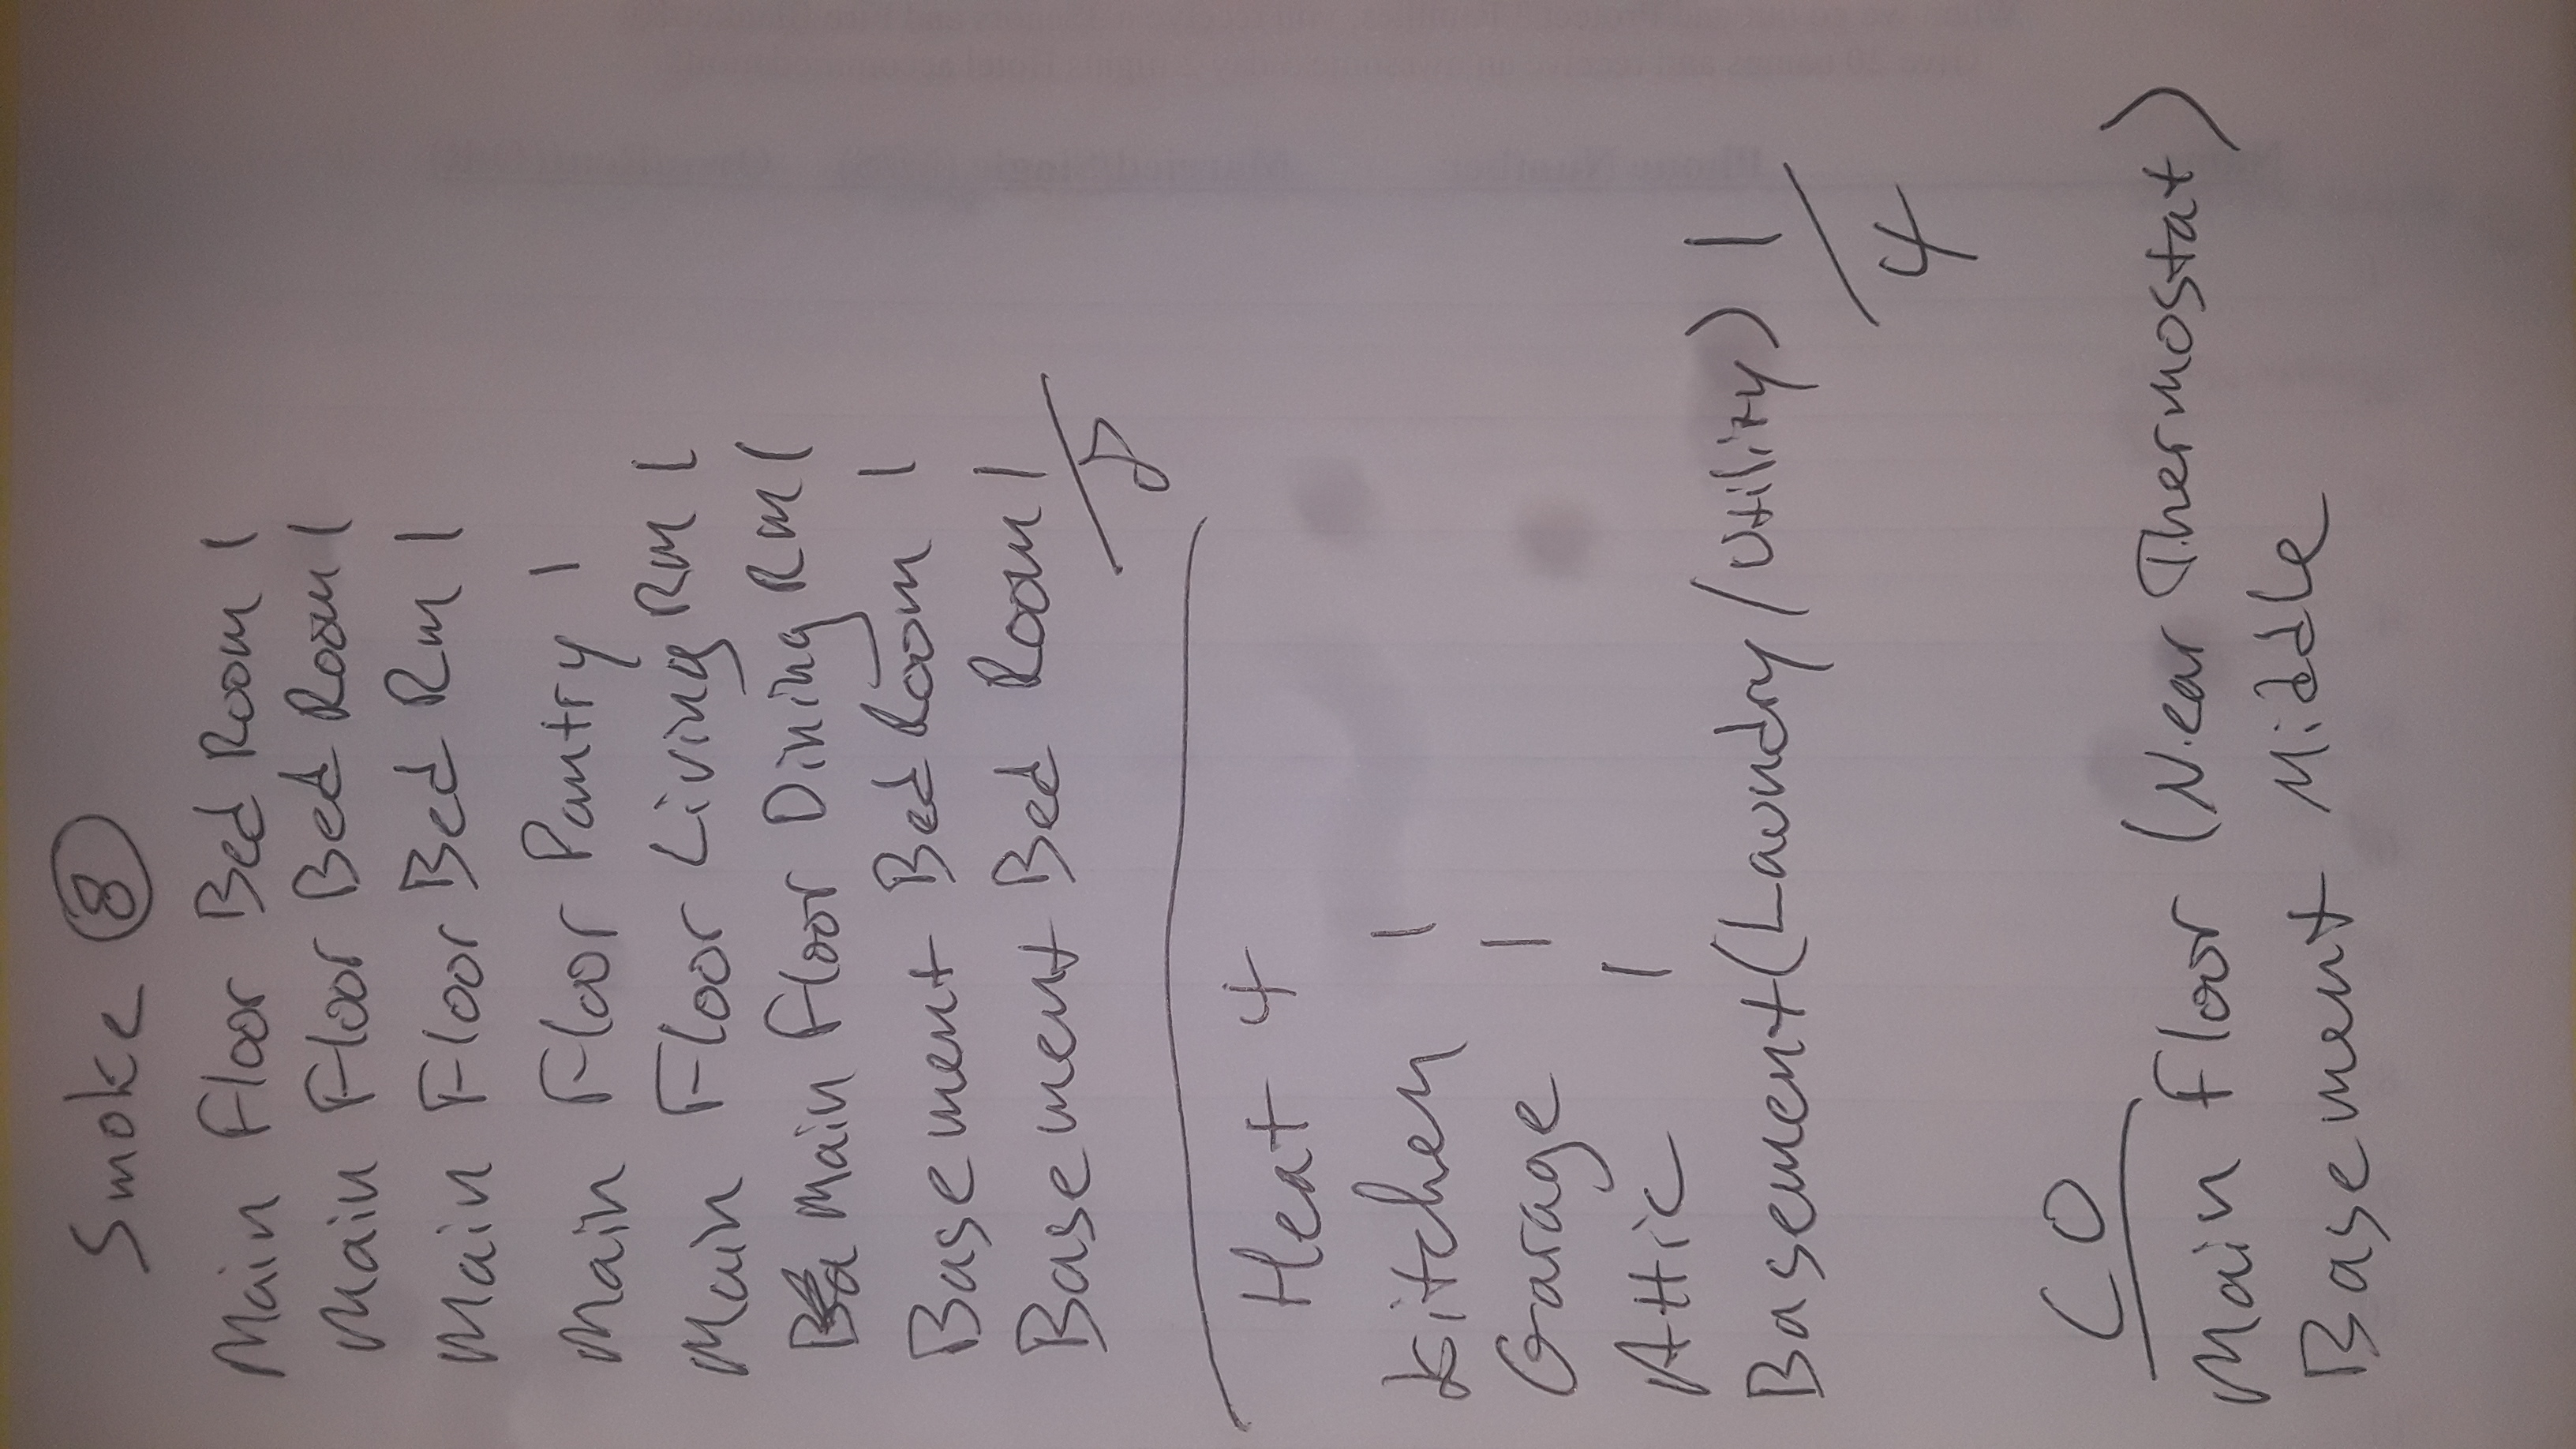 Smoke 8
Main Floor Bed Room 1
Main Floor Bed Room 1
Main Floor Bed Rm 1
Main Floor Pantry 1
Main Floor Living Rm 1
Main Floor Dining Rm 1
Basement Bed Room 1
Basement Bed Room 1
8
Heat 4
Kitchen 1
Garage 1
Attic 1
Basement (Laundry/Utility) 1
4
CO
Main Floor (Near Thermostat)
Basement Middle